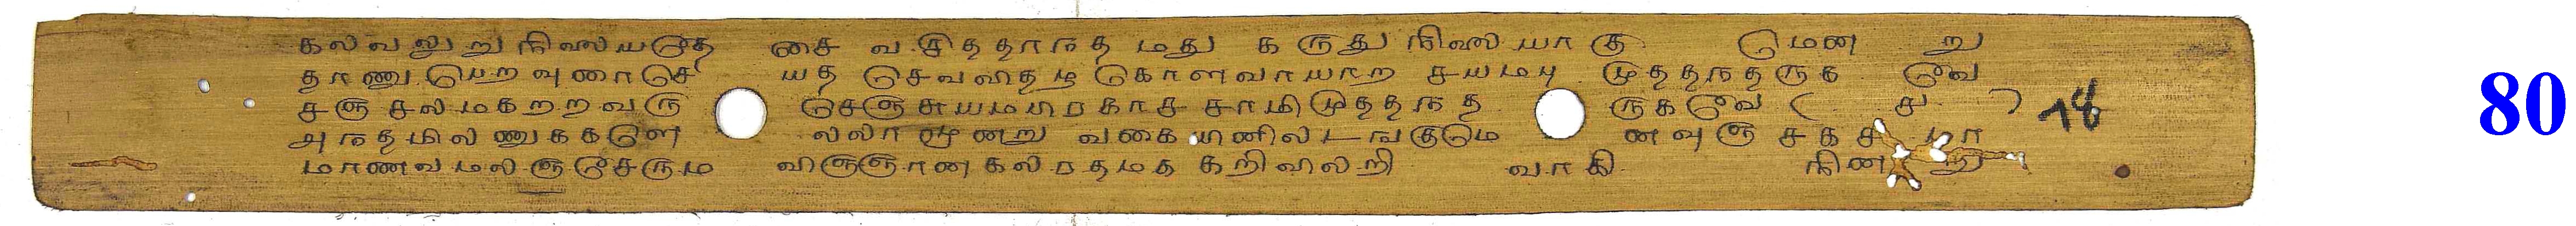 கலவலுறு நிலையடுத தசை வ சித்தாநத மது கருது நிலையாகு மென று
தாணு பெற வுணாசெ யத செவவிதழ கொளவாயாற சயமபு முததநதருக வே
சஞ சலமகறறவரு செஞசுயமபிரகாச சாமி முததநத ருகவே ( சு )
அநதமில ணுககளெ லலா மூணறு வகை யிணிலடஙகுமெ ணவுஞ சகச மா
மாணவமலஞ சேரும விஞஞாணகலரதமத கறிவிலறி வாகி நிண று
18
80